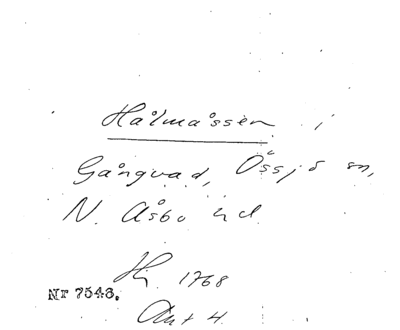 Hålmåssen i
Gångvad, Össjö sn,
N. Åsbo hd.
Hj. 1768
Nr 7543.
Akt 4.